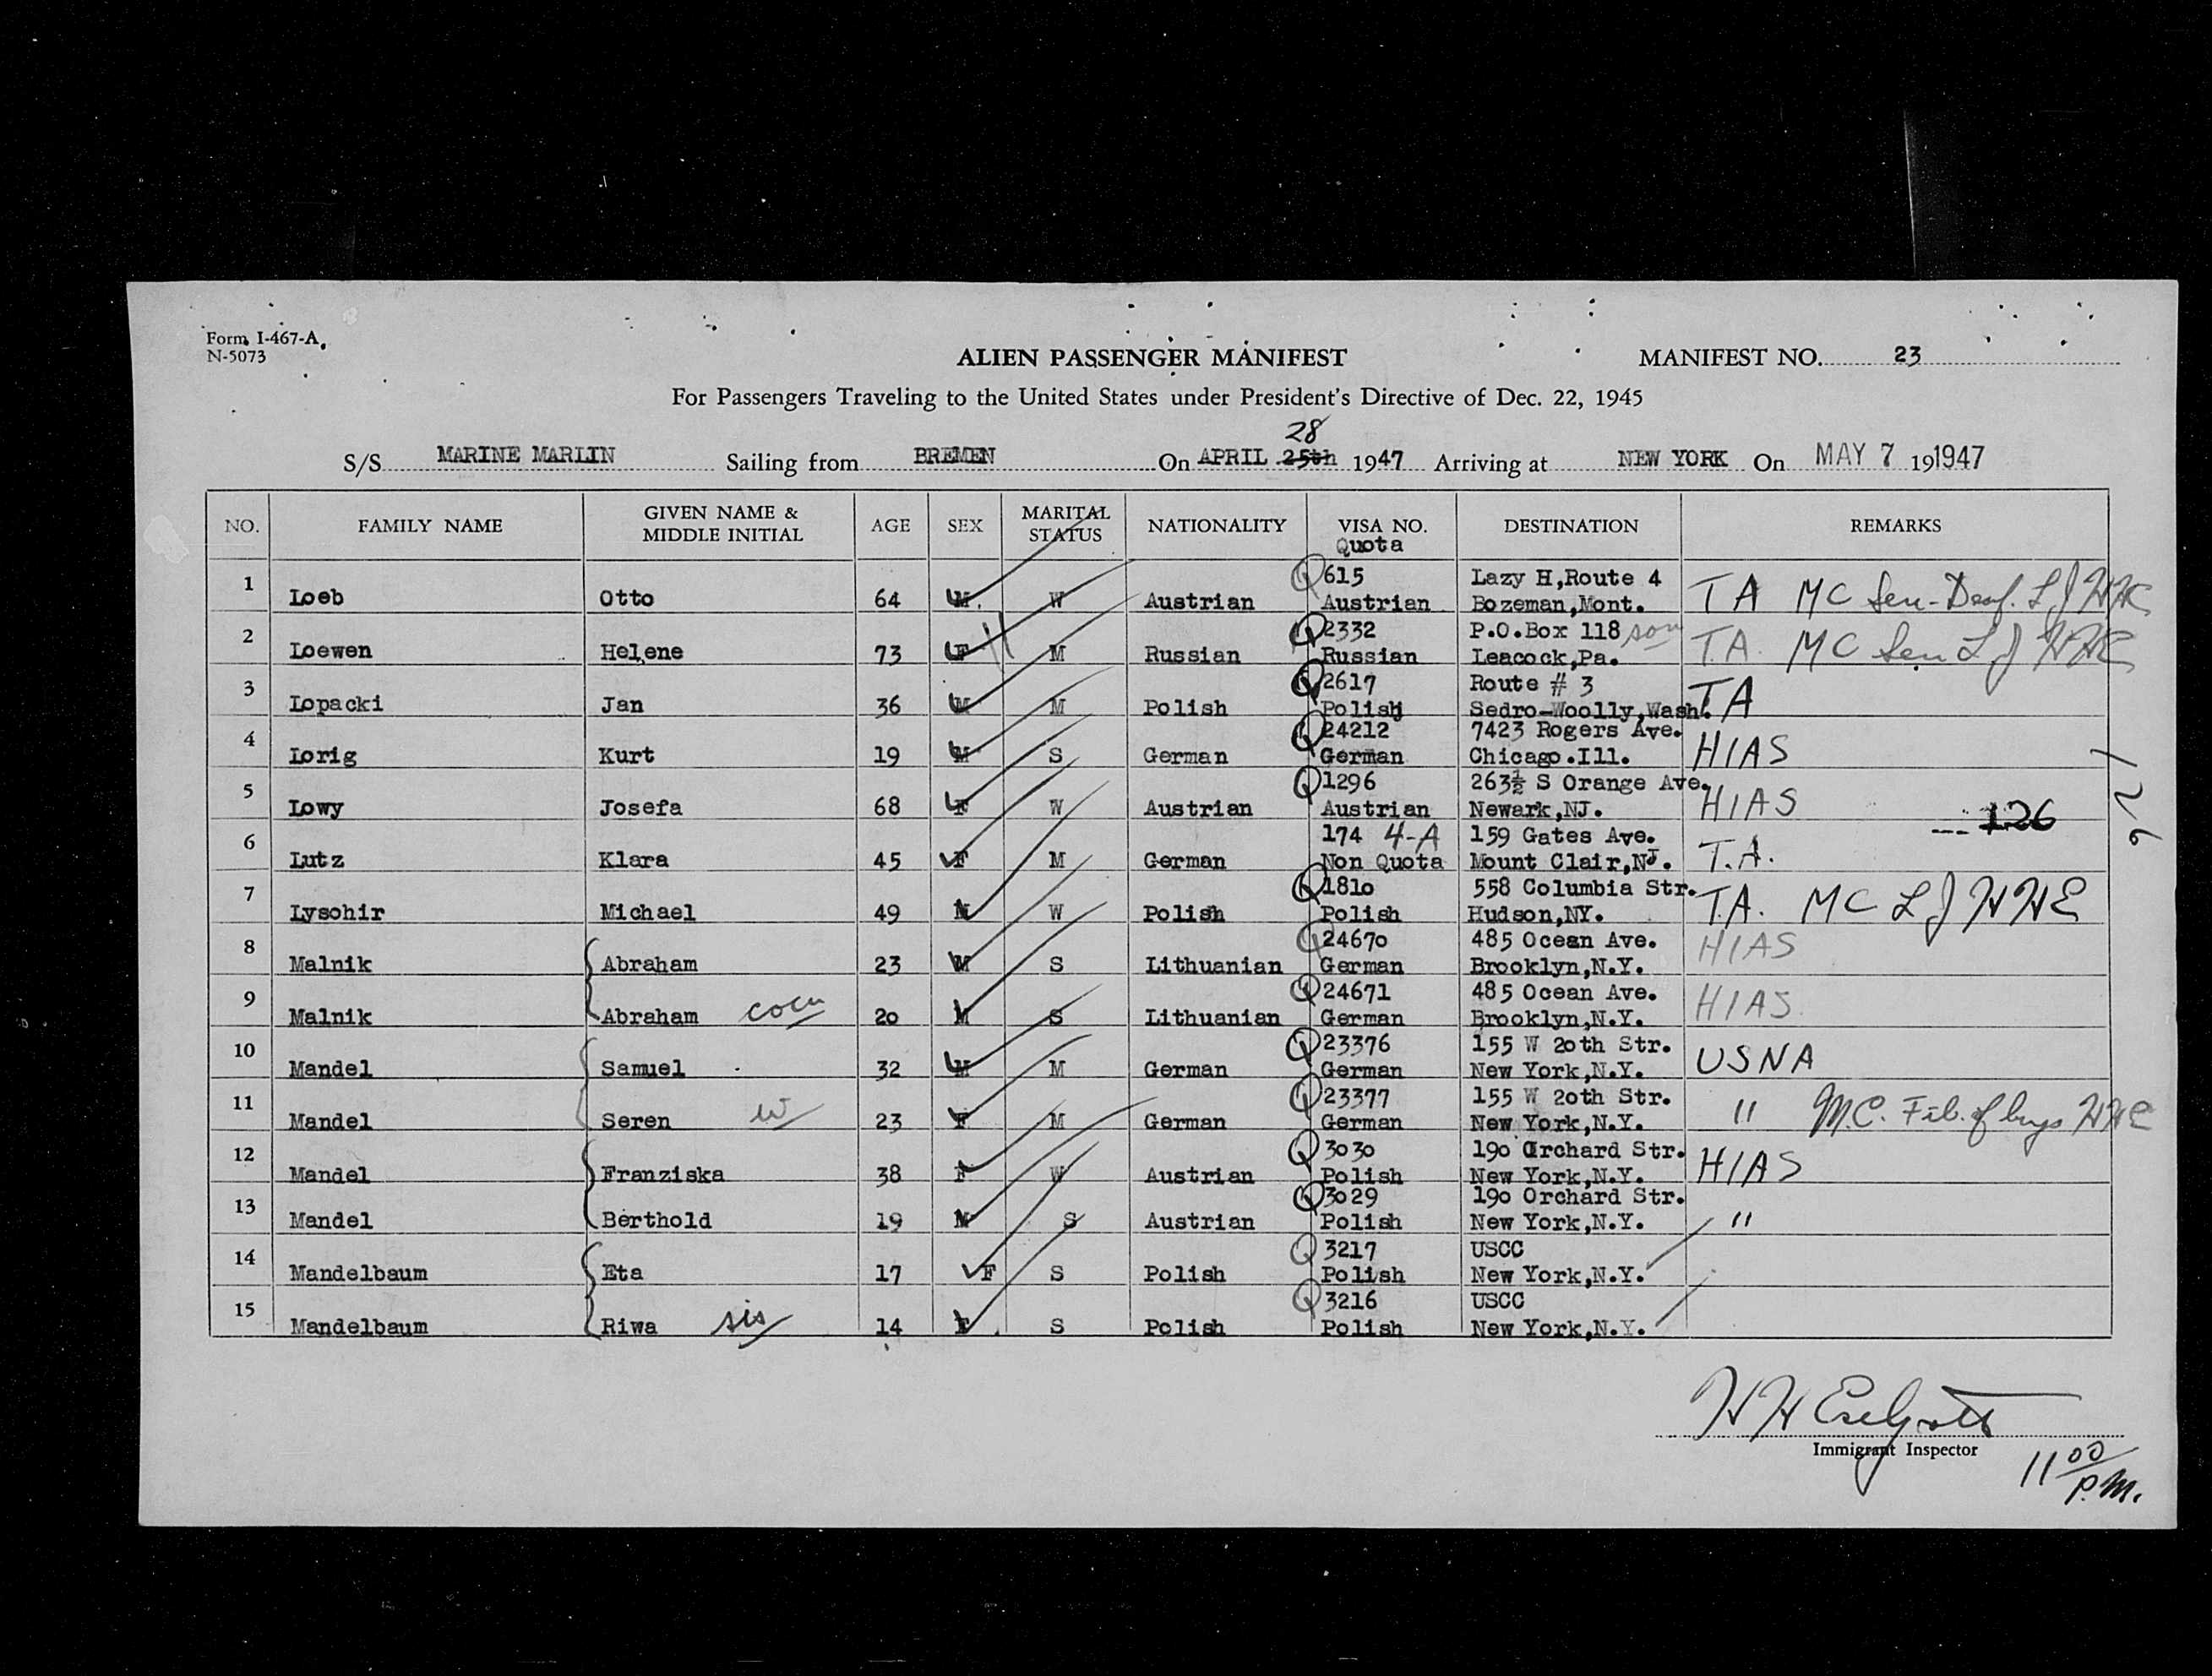 Form I-467-A
N-5073
ALIEN PASSENGER MANIFEST
MANIFEST NO. 23
For Passengers Traveling to the United States under President's Directive of Dec. 22, 1945
28
S/S MARINE MARLIN Sailing from BREMEN On APRIL 25th 1947 Arriving at NEW YORK On MAY 7 191947
NO. FAMILY NAME GIVEN NAME & MIDDLE INITIAL AGE SEX MARITAL STATUS NATIONALITY VISA NO. Quota DESTINATION REMARKS
1 Loeb Otto 64 M. W Austrian Q 615 Austrian Lazy H,Route 4 Bozeman,Mont. TA MC Sen-Deaf. L J HHE
2 Loewen Helene 73 F M Russian Q 2332 Russian P.O.Box 118 son Leacock,Pa. T.A. MC Sen L J HHE
3 Lopacki Jan 36 M M Polish Q 2617 Polish Route # 3 Sedro-Woolly,Wash. TA
4 Lorig Kurt 19 M S German Q 24212 German 7423 Rogers Ave. Chicago.Ill. HIAS
5 Lowy Josefa 68 F W Austrian Q 1296 Austrian 263½ S Orange Ave. Newark,NJ. HIAS
126
126
6 Lutz Klara 45 F M German 174 4-A Non Quota 159 Gates Ave. Mount Clair,NJ. T.A.
7 Lysohir Michael 49 M W Polish Q 1810 Polish 558 Columbia Str. Hudson,NY. T.A. MC L J HHE
8 Malnik Abraham 23 M S Lithuanian Q 24670 German 485 Ocean Ave. Brooklyn,N.Y. HIAS
9 Malnik Abraham cou 20 M S Lithuanian Q 24671 German 485 Ocean Ave. Brooklyn,N.Y. HIAS
10 Mandel Samuel 32 M M German Q 23376 German 155 W 20th Str. New York,N.Y. USNA
11 Mandel Seren w 23 F M German Q 23377 German 155 W 20th Str. New York,N.Y. " M.C. Fib. of lungs HHE
12 Mandel Franziska 38 F W Austrian Q 3030 Polish 190 Orchard Str. New York,N.Y. HIAS
13 Mandel Berthold 19 M S Austrian Q 3029 Polish 190 Orchard Str. New York,N.Y. "
14 Mandelbaum Eta 17 F S Polish Q 3217 Polish USCC New York,N.Y.
15 Mandelbaum Riwa sis 14 F S Polish Q 3216 Polish USCC New York,N.Y.
H H
Immigrant Inspector
11 00 P.M.